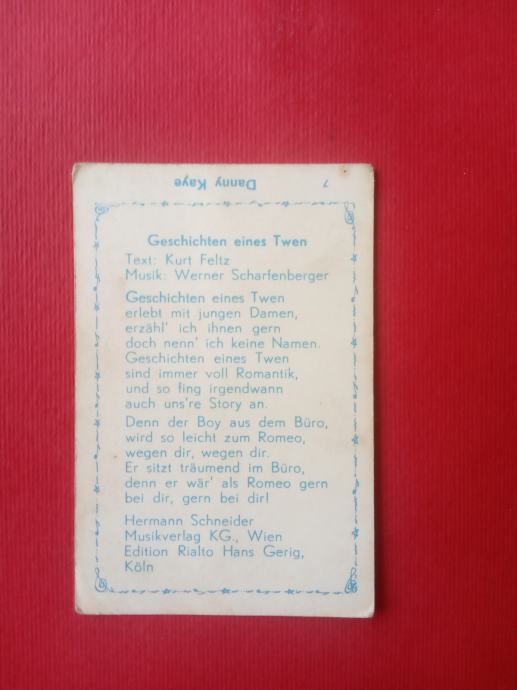 7 Danny Kaye
Geschichten eines Twen
Text: Kurt Feltz
Musik: Werner Scharfenberger
Geschichten eines Twen
erlebt mit jungen Damen,
erzähl' ich ihnen gern
doch nenn' ich keine Namen.
Geschichten eines Twen
sind immer voll Romantik,
und so fing irgendwann
auch uns're Story an.
Denn der Boy aus dem Büro,
wird so leicht zum Romeo,
wegen dir, wegen dir.
Er sitzt träumend im Büro,
denn er wär' als Romeo gern
bei dir, gern bei dir!
Hermann Schneider
Musikverlag KG., Wien
Edition Rialto Hans Gerig,
Köln